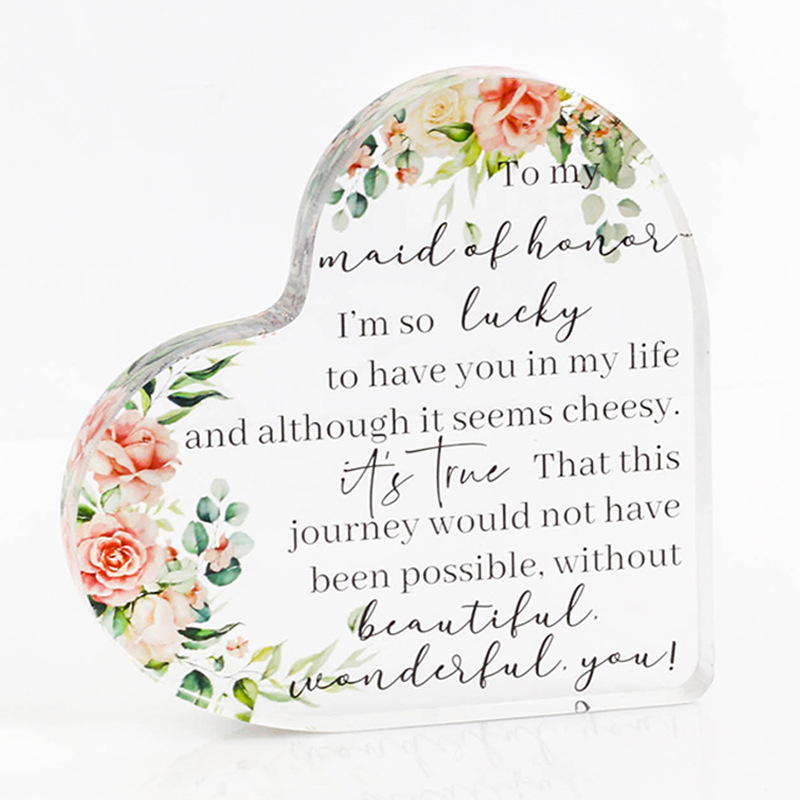 To my
maid of honor-
I'm so lucky
to have you in my life
and although it seems cheesy.
it's true That this
journey would not have
been possible, without
beautiful.
wonderful. you!